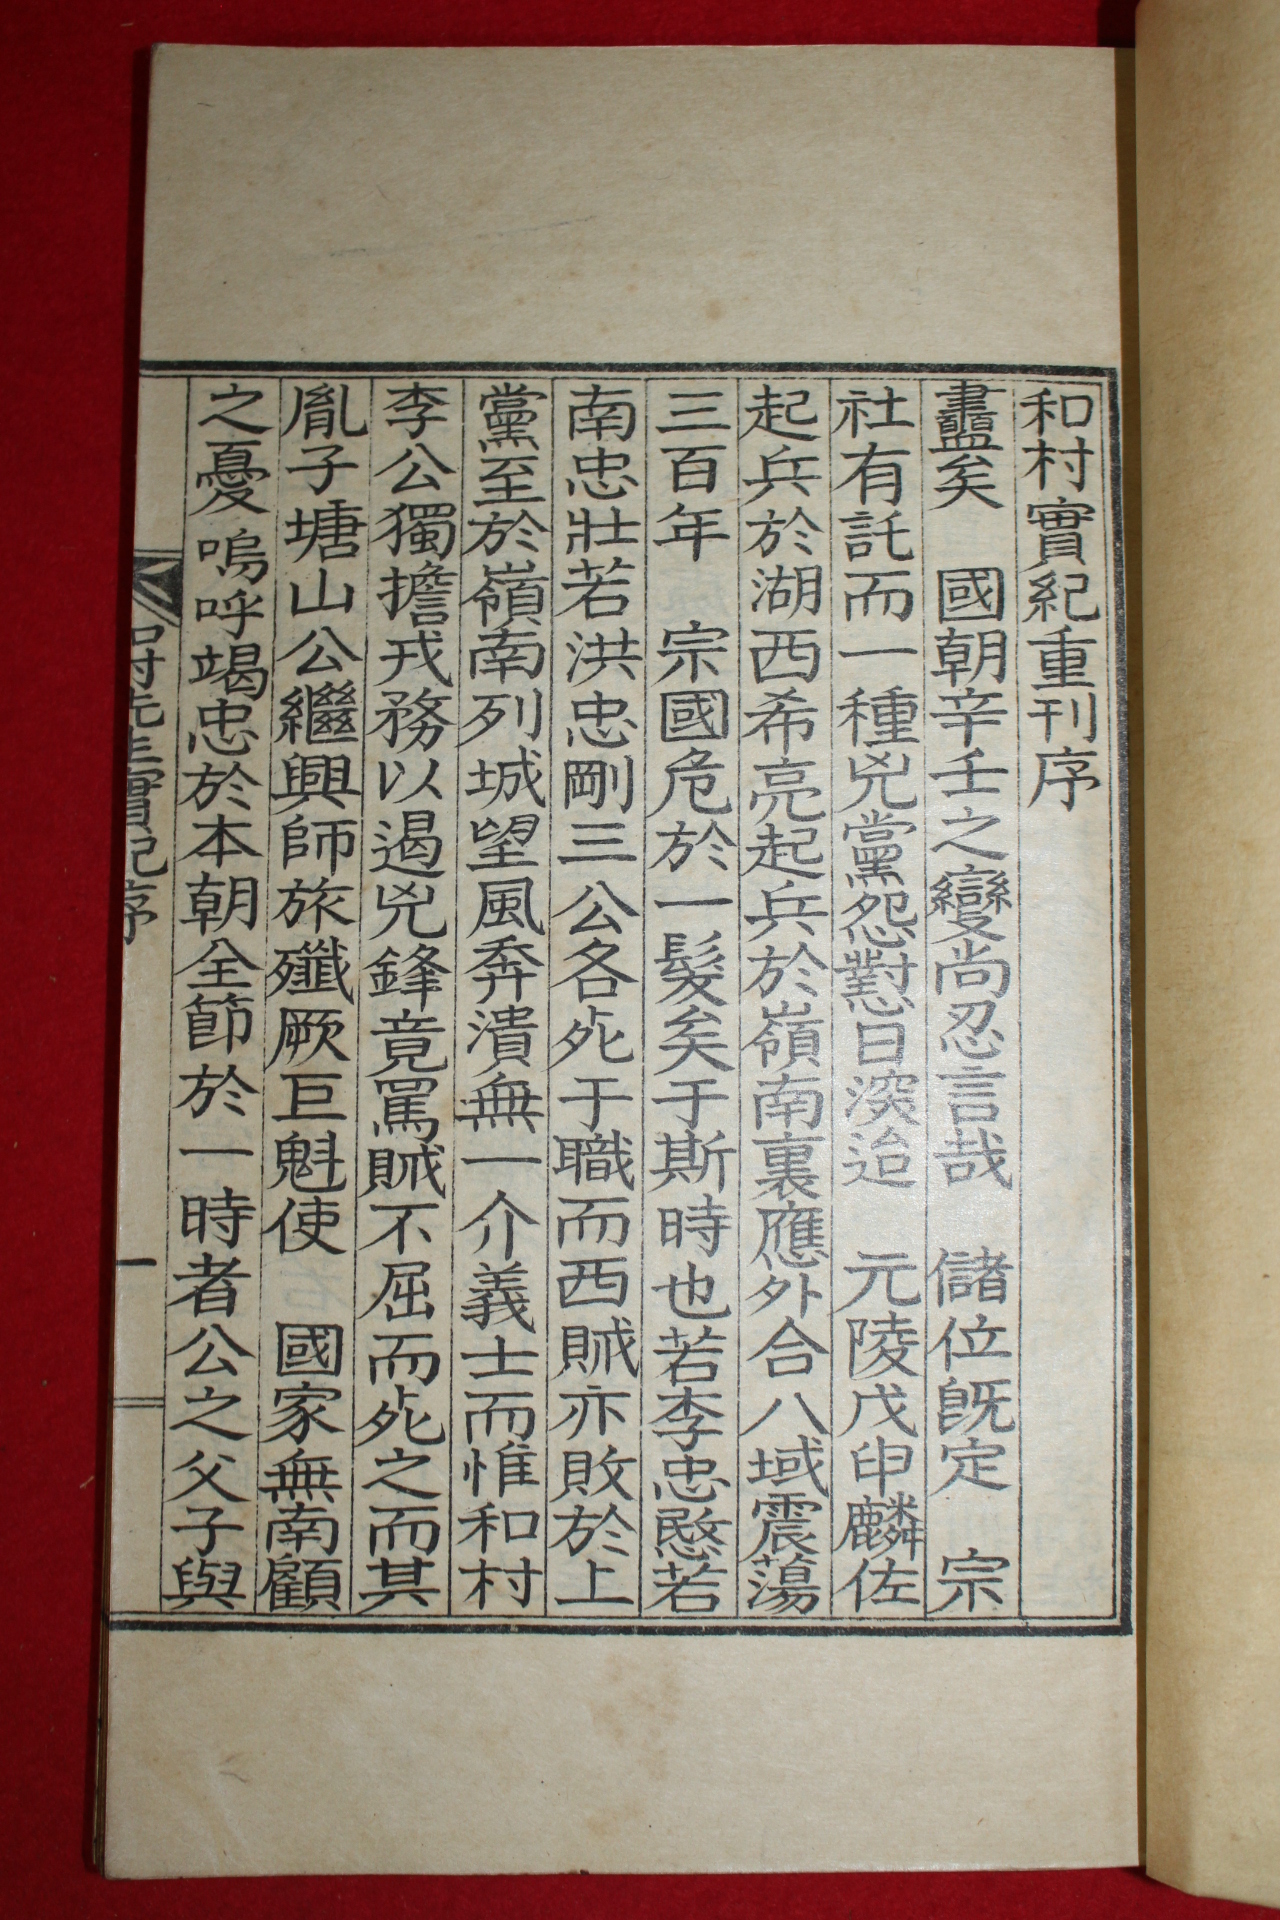 和村實紀重刊序
衋矣　國朝辛壬之變尚忍言哉　儲位旣定　宗
社有託而一種兇黨怨懟日深迨　元陵戊申麟佐
起兵於湖西希亮起兵於嶺南裏應外合八域震蕩
三百年　宗國危於一髮矣于斯時也若李忠愍若
南忠壯若洪忠剛三公各死于職而西賊亦敗於上
黨至於嶺南列城望風奔潰無一介義士而惟和村
李公獨擔戎務以遏兇鋒竟罵賊不屈而死之而其
胤子塘山公繼興師旅殲厥巨魁使　國家無南顧
之憂嗚呼竭忠於本朝全節於一時者公之父子與
和村先生實紀序　一